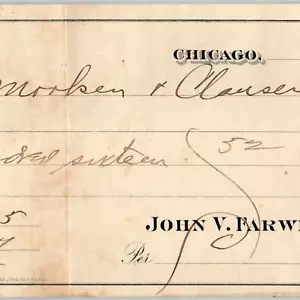 CHICAGO.
Moorken & Clauser
dred sixteen 52
5
JOHN V. FARW
Per